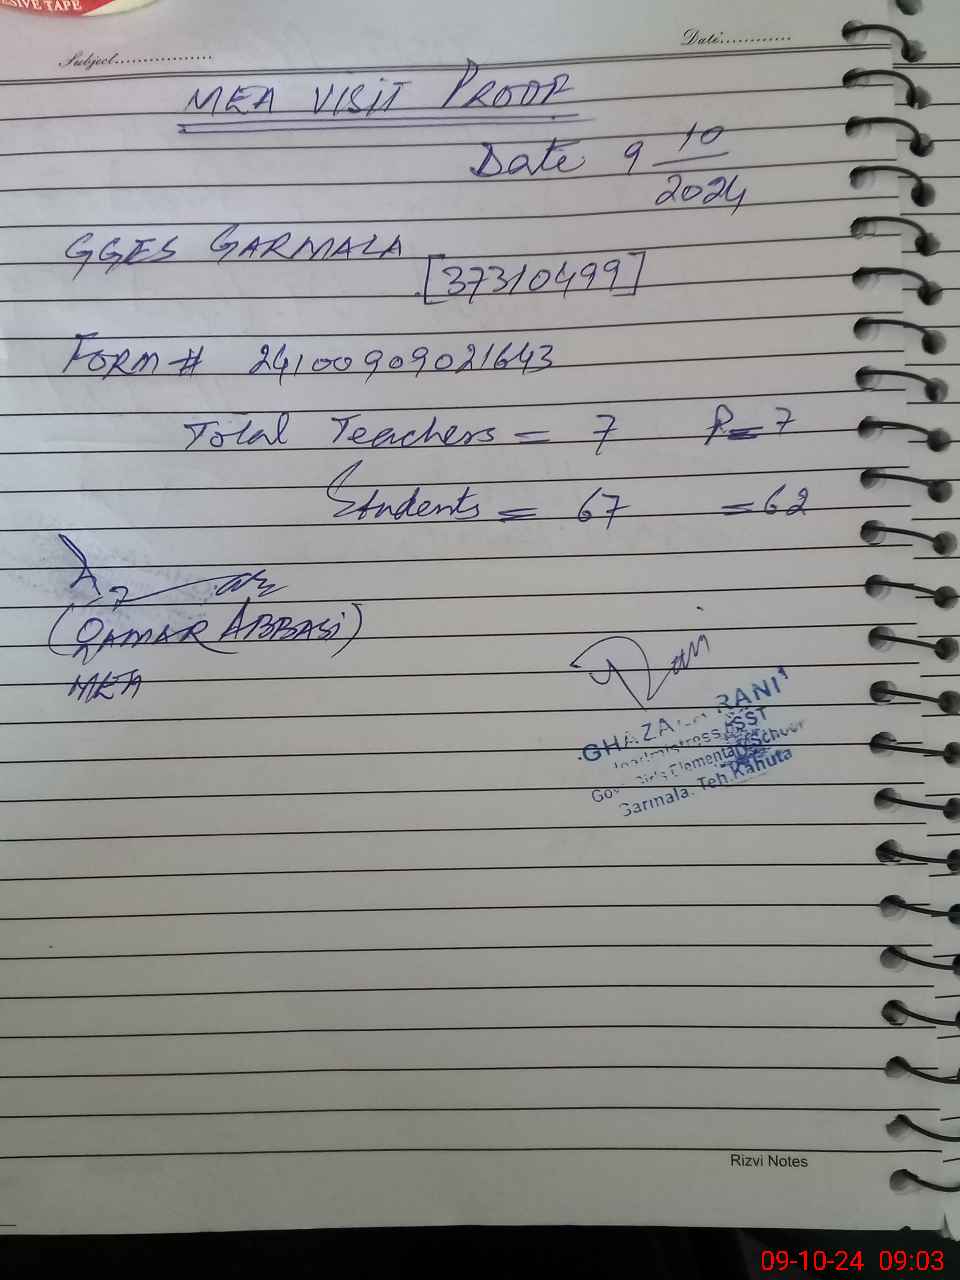 ESIVE TAPE
Subject.................
Date............
MEA VISIT PROOF
Date 9 10
2024
GGES GARMALA
[37310499]
FORM # 24100909021643
Total Teachers = 7 P = 7
Students = 67 = 62
(QAMAR ABBASI)
MEA
GHAZALA RANI
Headmistress SST
Govt Girls Elementary School
Garmala. Teh. Kahuta
Rizvi Notes
09-10-24 09:03